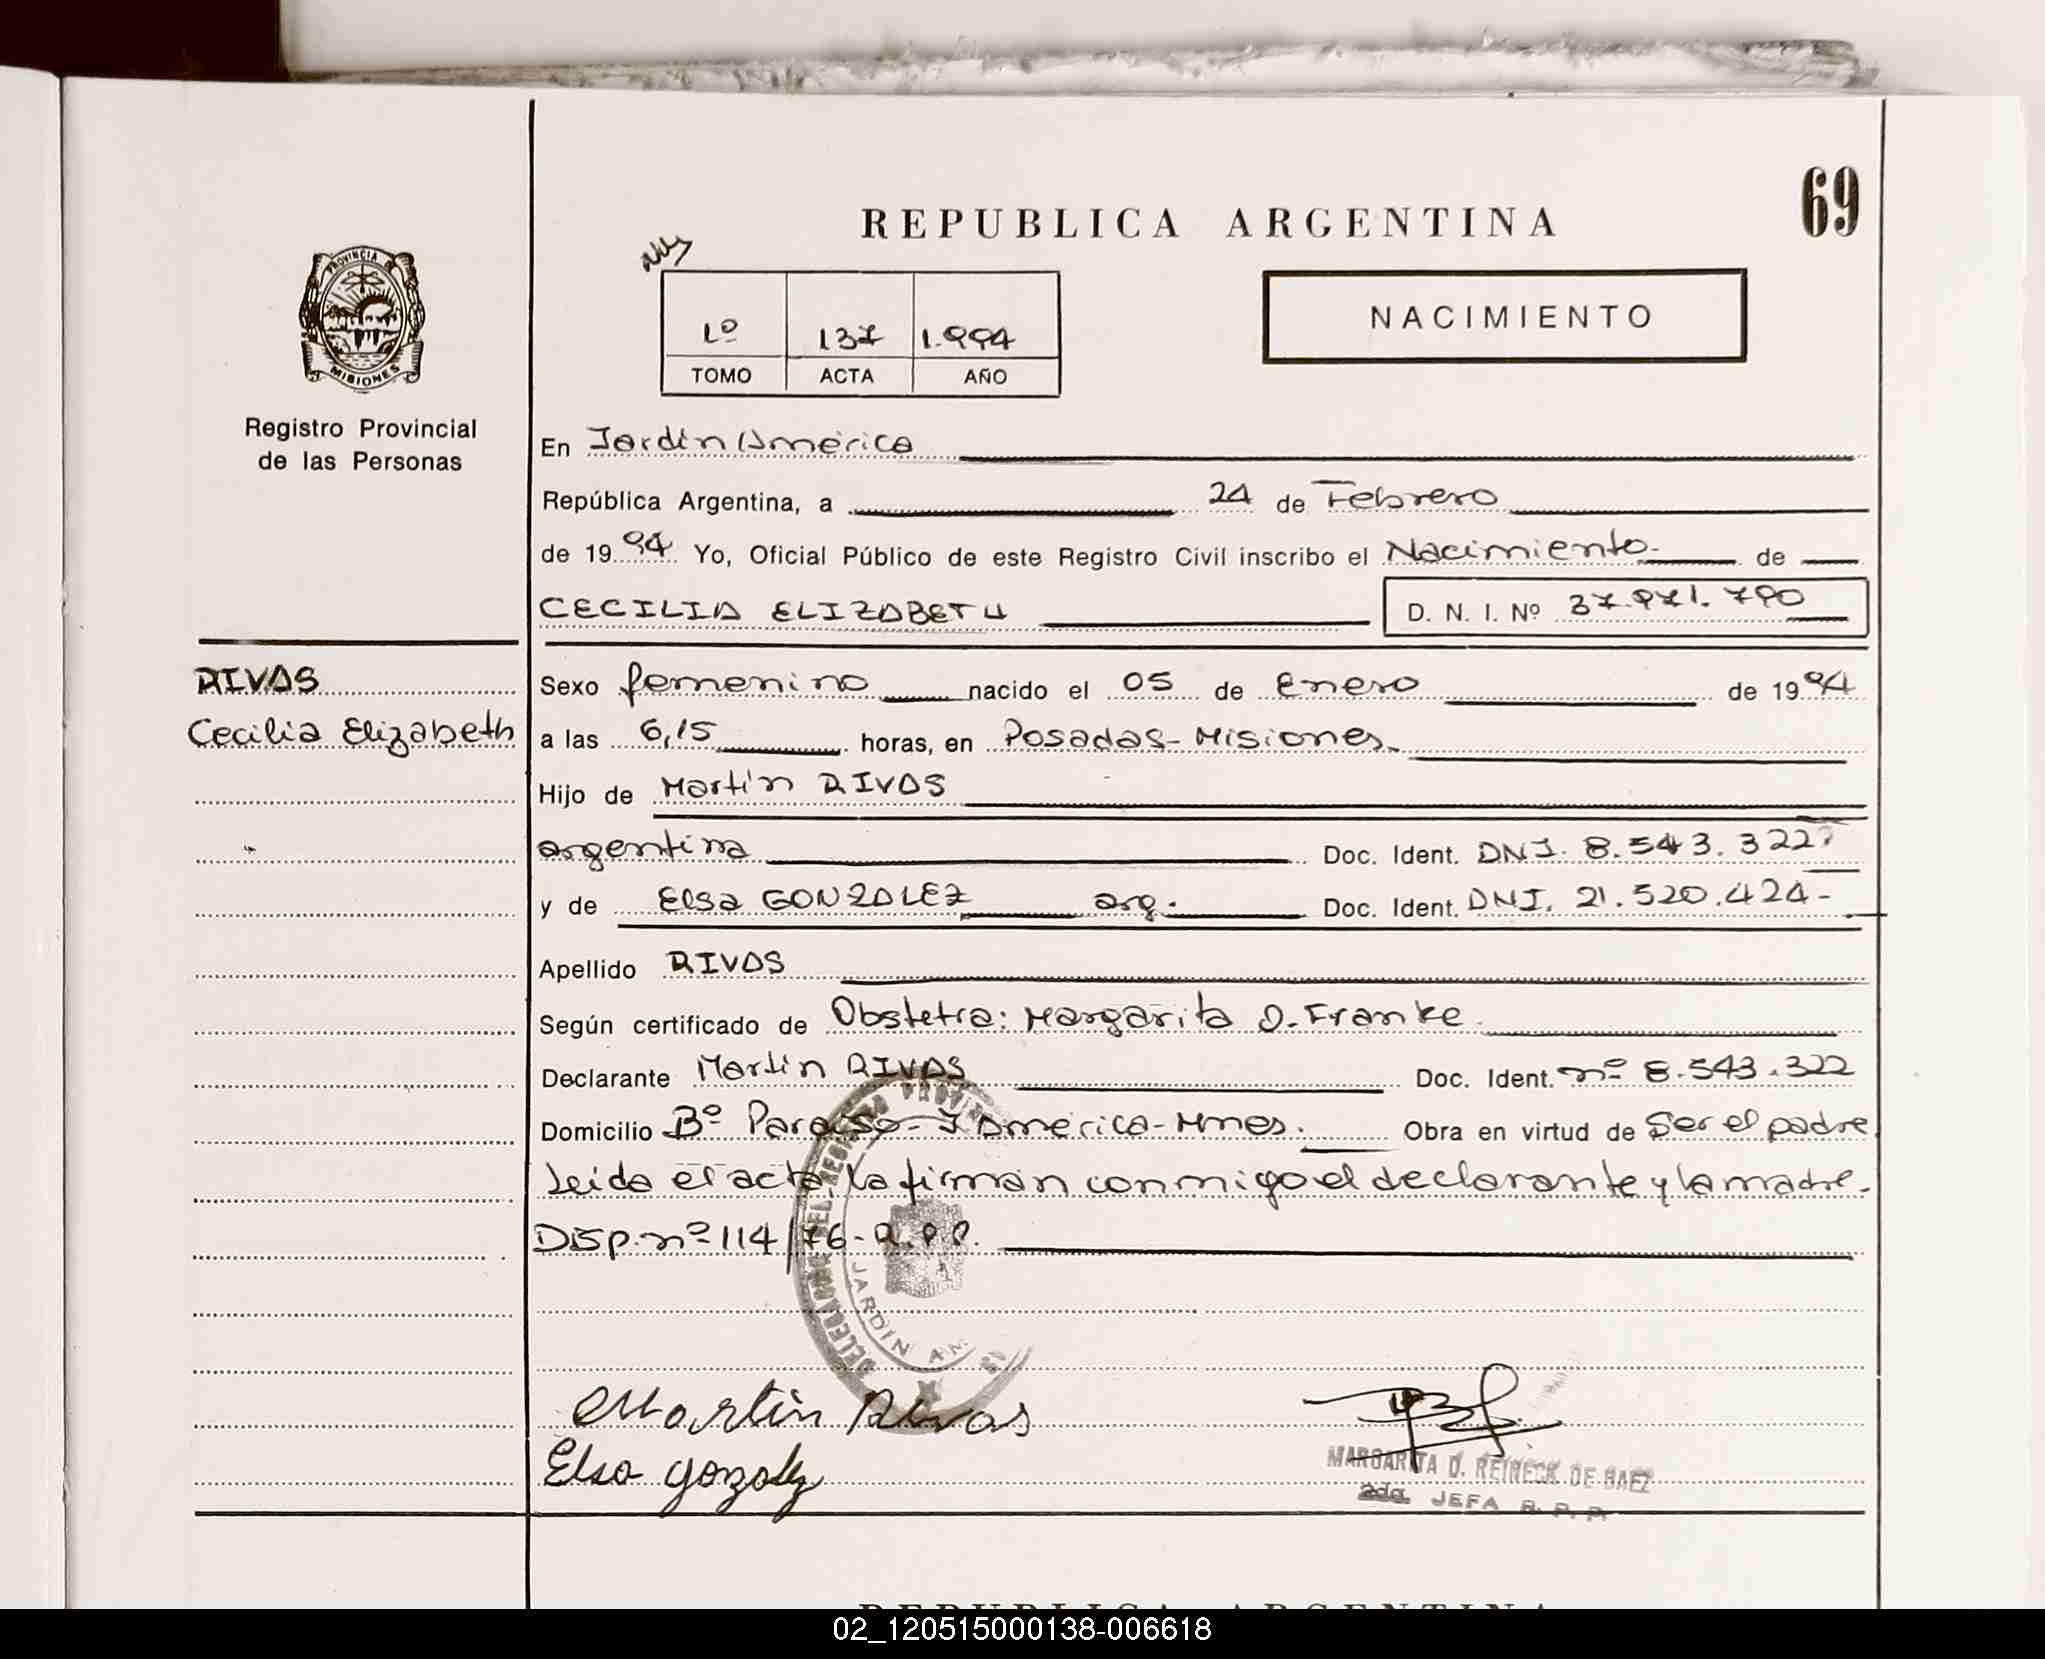 69
REPUBLICA ARGENTINA
PROVINCIA DE
MISIONES
1º 137 1.994
TOMO ACTA AÑO
NACIMIENTO
Registro Provincial
de las Personas
En Jardín América
República Argentina, a 24 de Febrero
de 1994 Yo, Oficial Público de este Registro Civil inscribo el Nacimiento de
CECILIA ELIZABETH D. N. I. Nº 37.971.790
RIVAS
Cecilia Elizabeth
Sexo femenino nacido el 05 de Enero de 1994
a las 6,15 horas, en Posadas-Misiones.
Hijo de Martín RIVAS
argentina Doc. Ident. DNI. 8.543.322
y de Elsa GONZALEZ arg. Doc. Ident. DNI. 21.520.424-
Apellido RIVAS
Según certificado de Obstetra: Margarita O. Franke
Declarante Martín RIVAS Doc. Ident. nº 8.543.322
Domicilio Bº Paraiso-J América-Mnes. Obra en virtud de Ser el padre
Leida el acta, la firman conmigo el declarante y la madre.
Disp. nº 114/76-R.P.P.
JARDIN AM
Martin Rivas
Elsa gozalz
MARGARITA D. REINECK DE BAEZ
2da. JEFA R. P. P.
REPUBLICA ARGENTINA
02_120515000138-006618